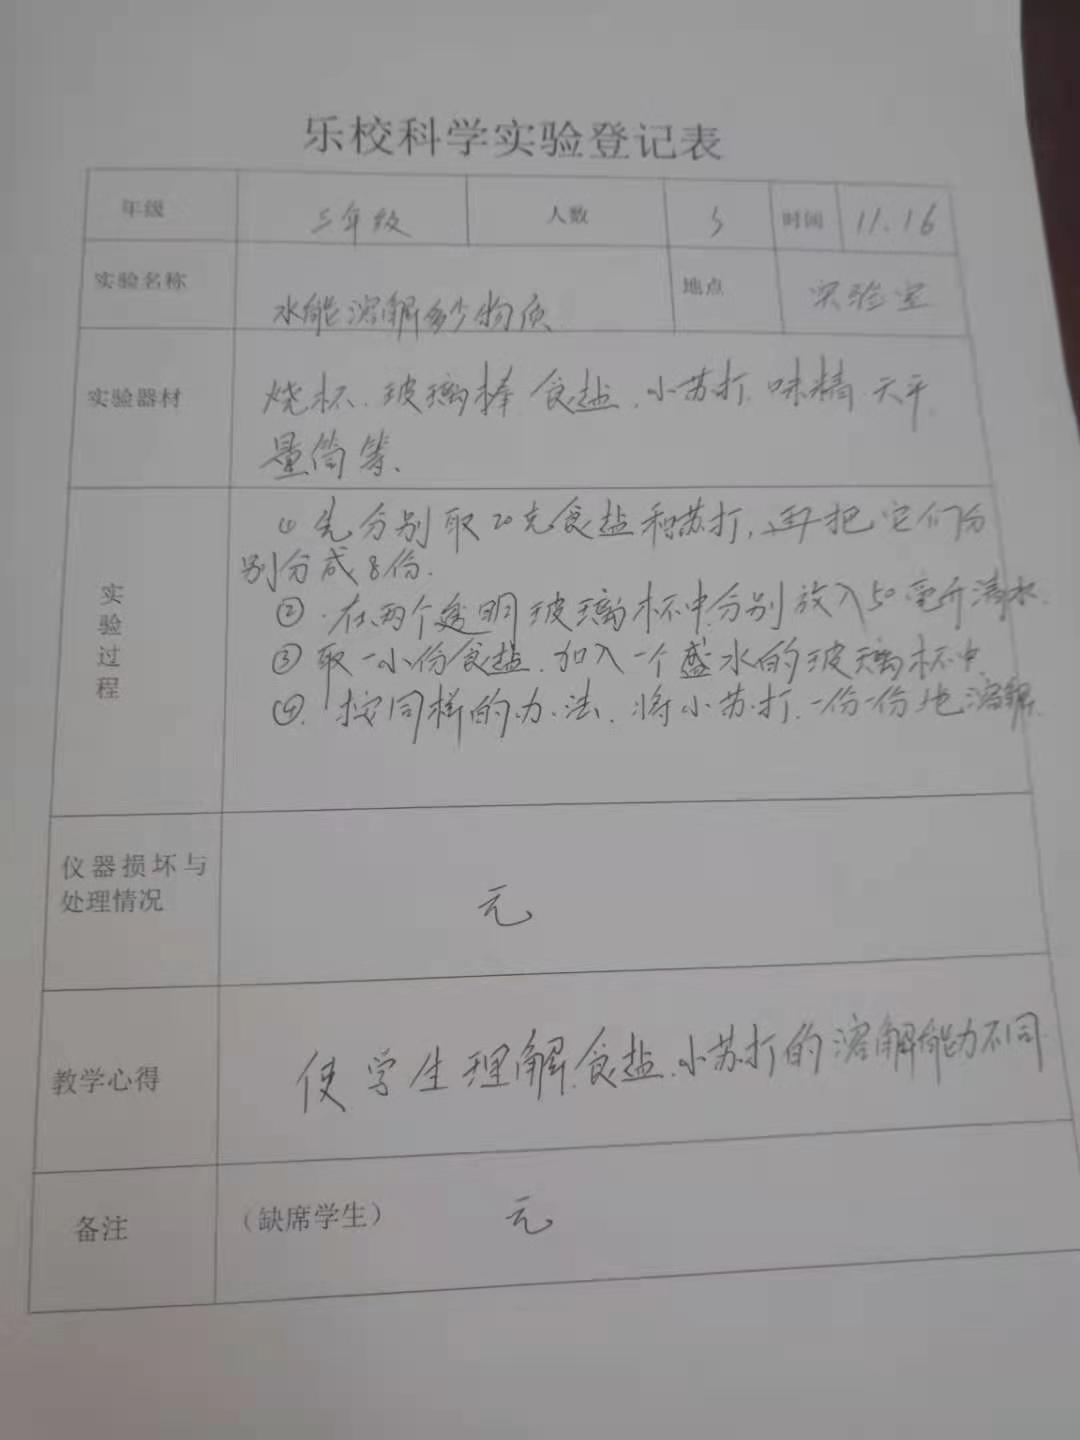 乐校科学实验登记表
年级 三年级 人数 3 时间 11.16
实验名称 水能溶解多少物质 地点 实验室
实验器材 烧杯、玻璃棒 食盐、小苏打、味精、天平
量筒等、
实验过程 ① 先分别取20克食盐和苏打，再把它们分
别分成8份.
②.在两个透明玻璃杯中分别放入50毫升清水.
③取一小份食盐.加入一个盛水的玻璃杯中.
④.按同样的办法.将小苏打.一份一份地溶解.
仪器损坏与
处理情况 元
教学心得 使学生理解食盐、小苏打的溶解能力不同
备注 （缺席学生） 元